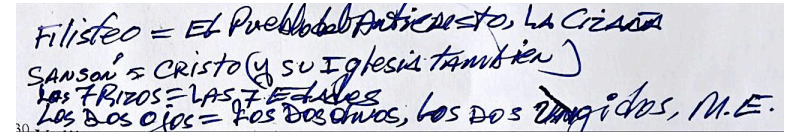 Filisteo = EL Pueblo del Anticristo, LA Cizaña
SANSÓN = CRISTO (y su Iglesia también)
Los 7 RIZOS = LAS 7 Edades
Los Dos Ojos = Los Dos Olivos, Los Dos Ungidos, M.E.
30